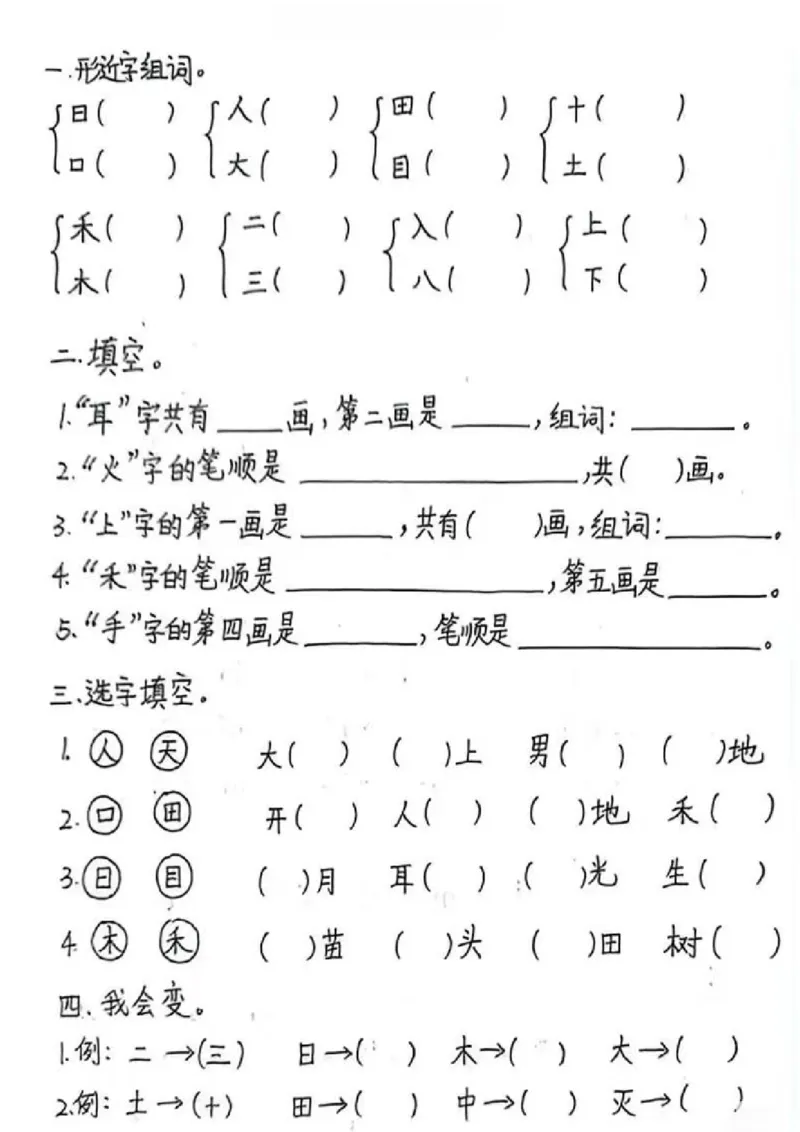 一.形近字组词。
日( ) 人( ) 田( ) 十( )
口( ) 大( ) 目( ) 土( )
禾( ) 二( ) 入( ) 上( )
木( ) 三( ) 八( ) 下( )
二.填空。
1.“耳”字共有____画,第二画是____,组词:______。
2.“火”字的笔顺是______________,共( )画。
3.“上”字的第一画是_____,共有( )画,组词:_____。
4.“禾”字的笔顺是______________,第五画是_____。
5.“手”字的第四画是______,笔顺是____________。
三、选字填空。
1. 人 天 大( ) ( )上 男( ) ( )地
2. 口 田 开( ) 人( ) ( )地 禾( )
3. 日 目 ( )月 耳( ) ( )光 生( )
4. 木 禾 ( )苗 ( )头 ( )田 树( )
四、我会变。
1.例: 二→(三) 日→( ) 木→( ) 大→( )
2.例: 土→(十) 田→( ) 中→( ) 灭→( )